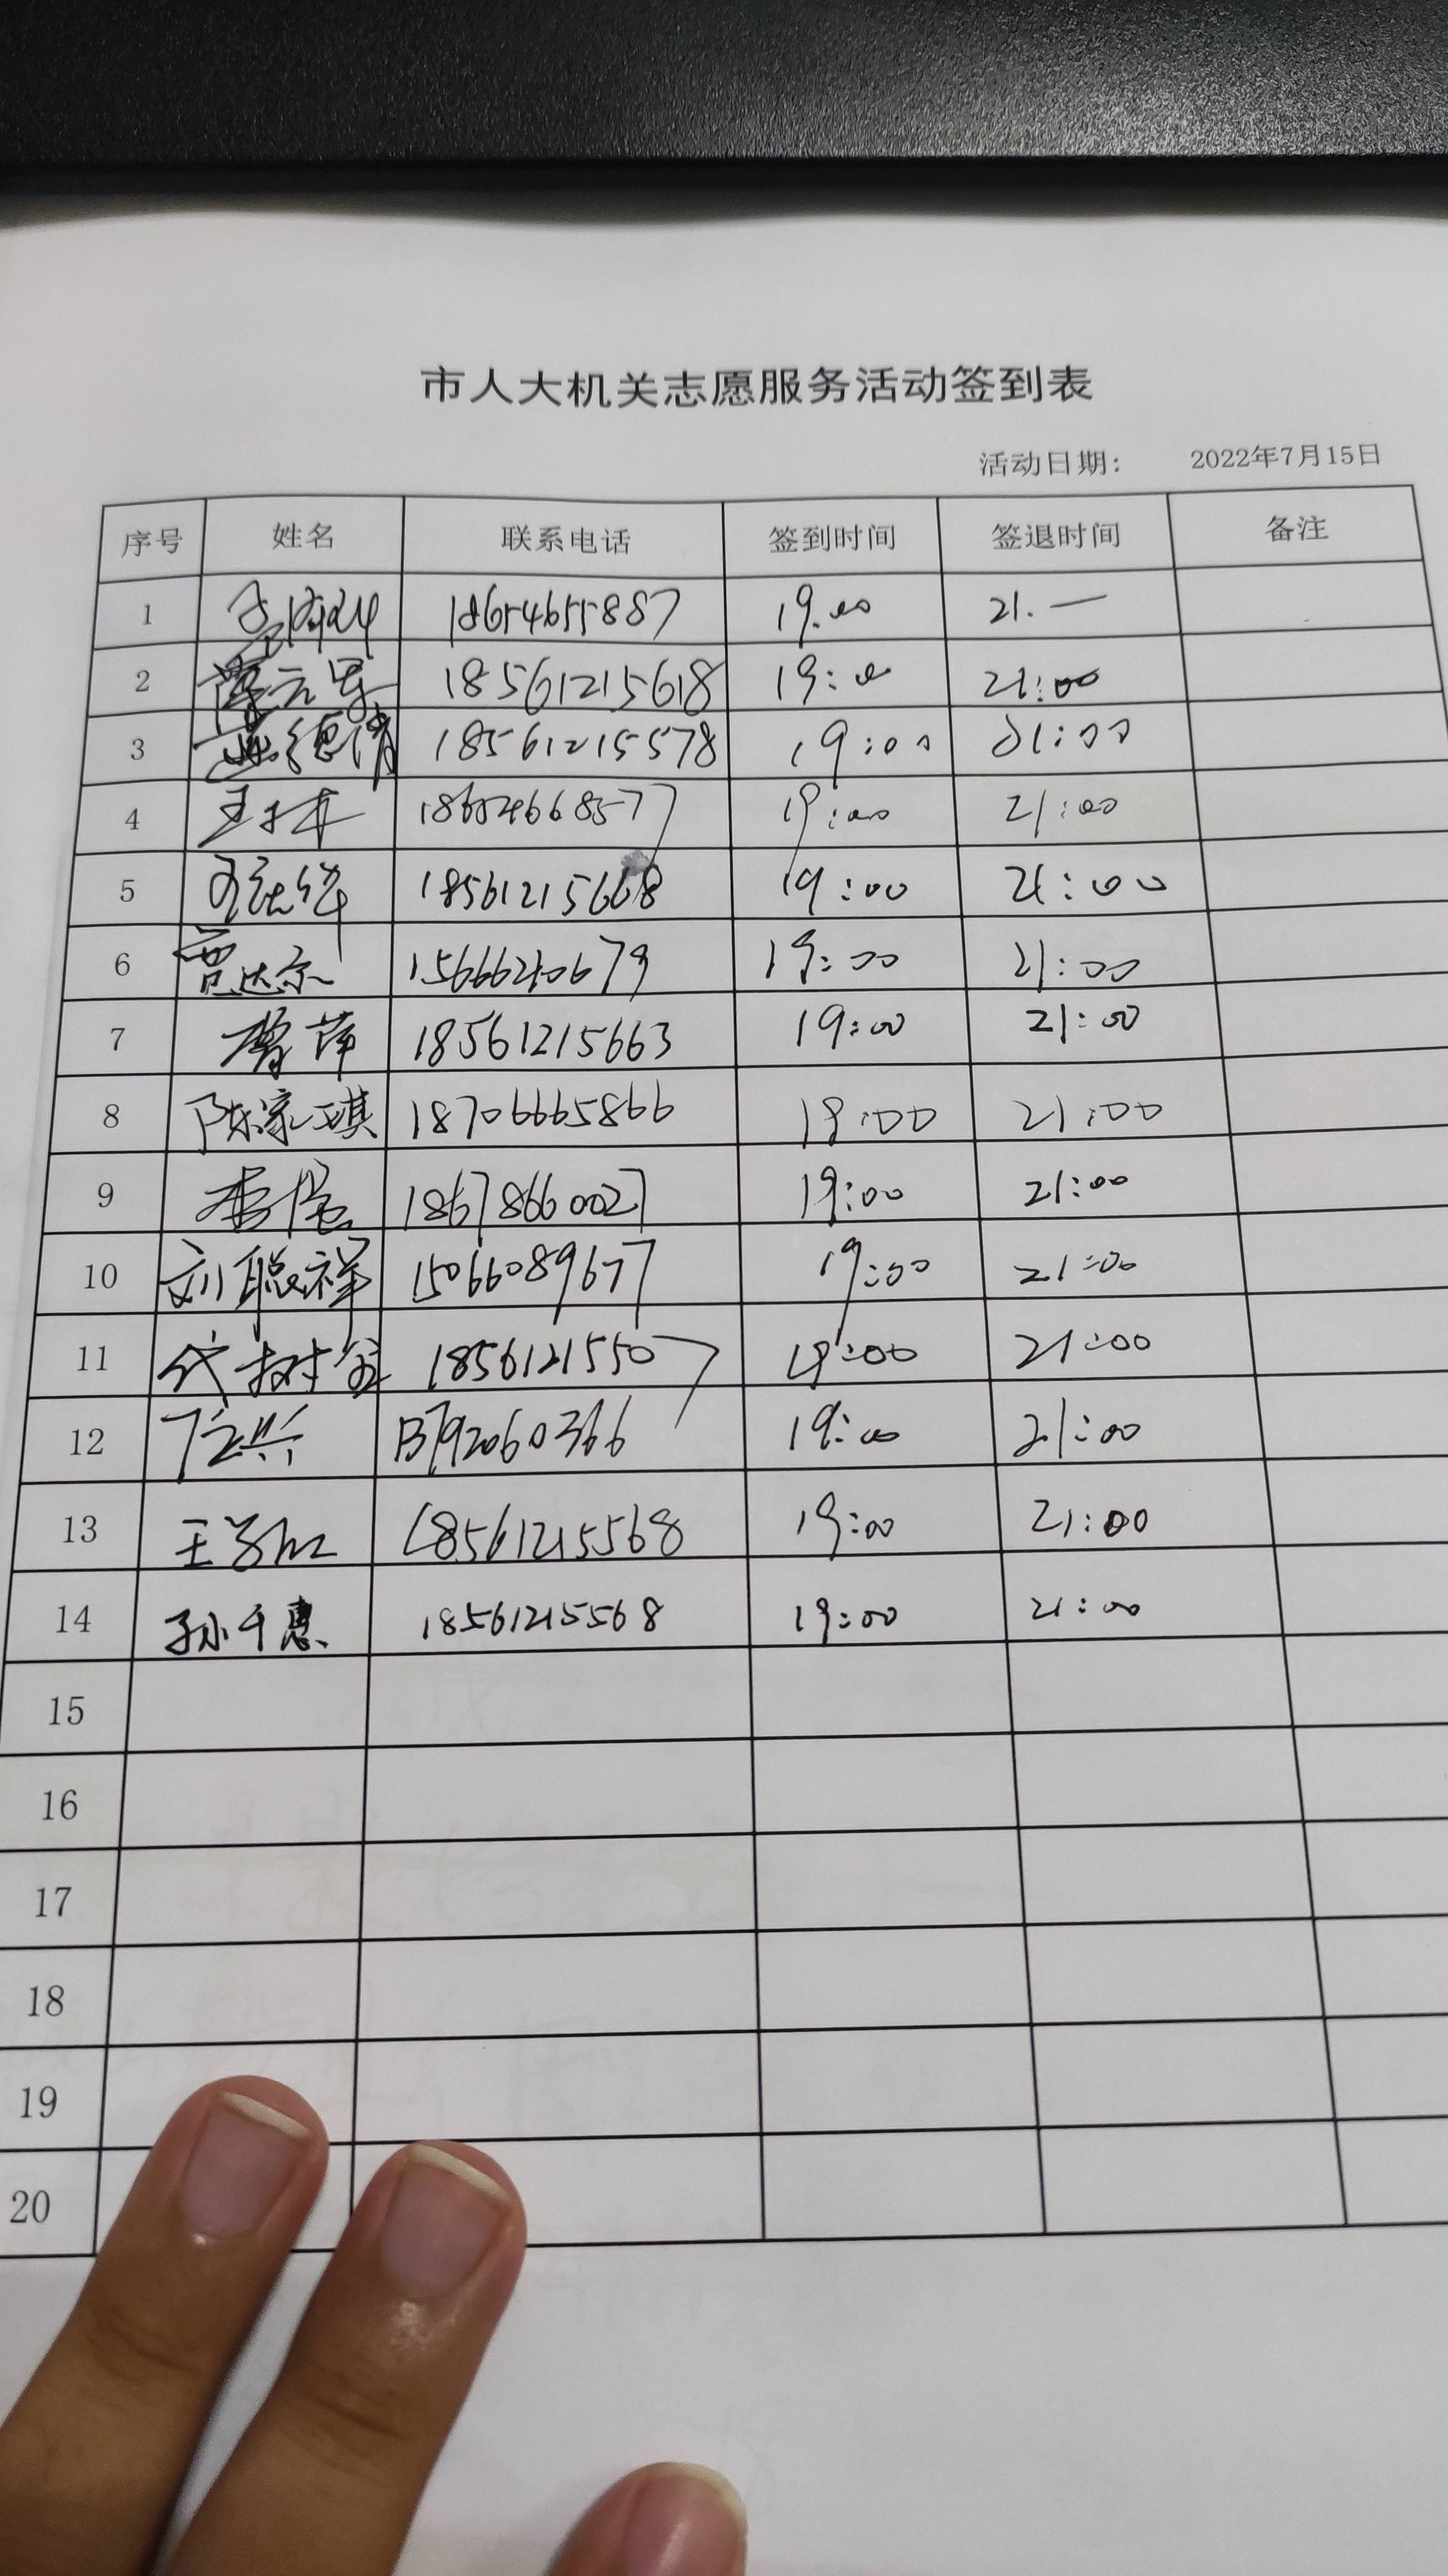 市人大机关志愿服务活动签到表
活动日期： 2022年7月15日
序号 姓名 联系电话 签到时间 签退时间 备注
1 18654655887 19.00 21.一
2 18561215618 19:00 21:00
3 18561215578 19:00 21:00
4 18654668577 19:00 21:00
5 18561215668 19:00 21:00
6 贾达尔 19:00 21:00
7 18561215663 19:00 21:00
8 陈家琪 18706665866 19:00 21:00
9 18678660027 19:00 21:00
10 刘聪祥 15066089677 19:00 21:00
11 代树 18561215507 19:00 21:00
12 13792060366 19:00 21:00
13 王 18561215568 19:00 21:00
14 孙千惠 18561215568 19:00 21:00
15
16
17
18
19
20